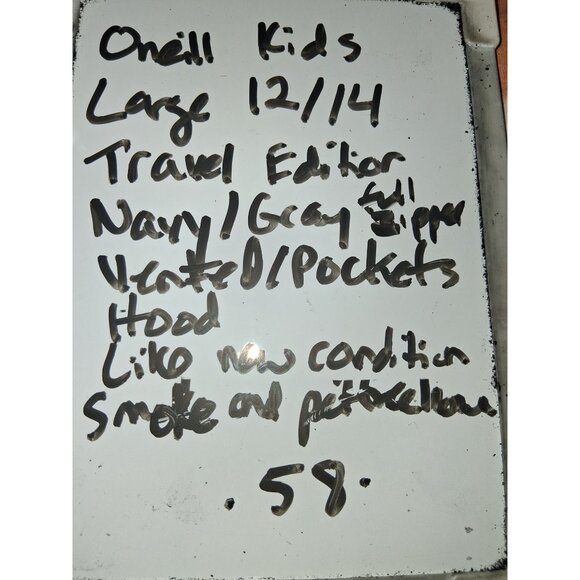 Oneill Kids
Large 12/14
Travel Edition
Navy/Gray full zipper
Vented/Pockets
Hood
Like new condition
Smoke and
.58.